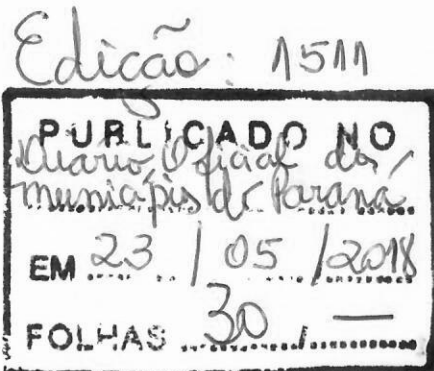 Edição: 1511
PUBLICADO NO
Diário Oficial dos
municípios do Paraná
EM 23 / 05 / 2018
FOLHAS 30 / —